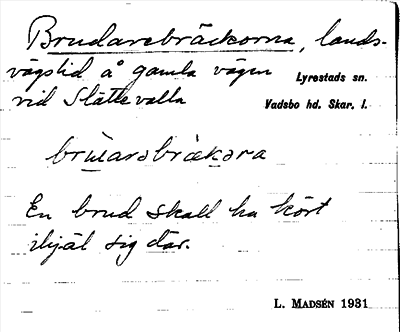 Brudarebräckorna, lands-
vägslid å gamla vägen
vid Slättevalla
Lyrestads sn.
Vadsbo hd. Skar. l.
brùarəbrækəra
En brud skall ha kört
ihjäl sig där.
L. MADSÉN 1931